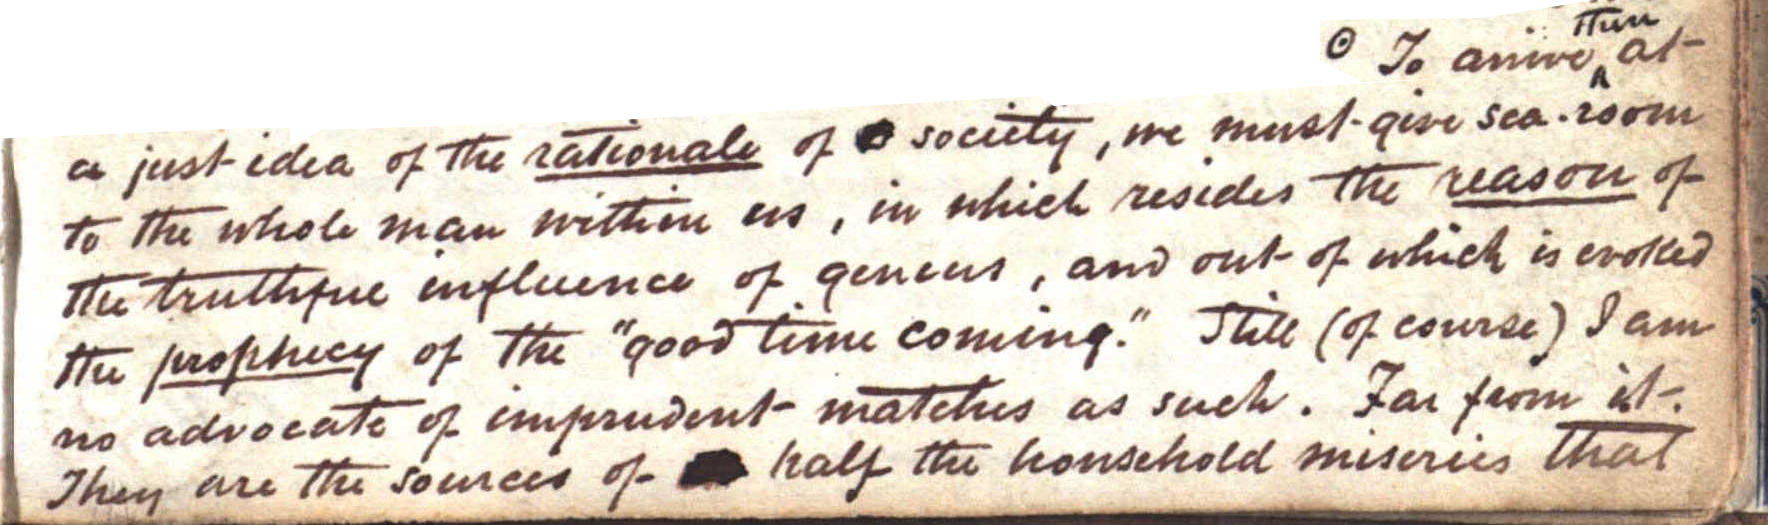 ⊙ To arrive then at
a just idea of the rationale of society, we must give sea-room
to the whole man within us, in which resides the reason of
the truthful influence of genius, and out of which is evoked
the prophecy of the "good time coming." Still (of course) I am
no advocate of imprudent matches as such. Far from it.
They are the sources of half the household miseries that